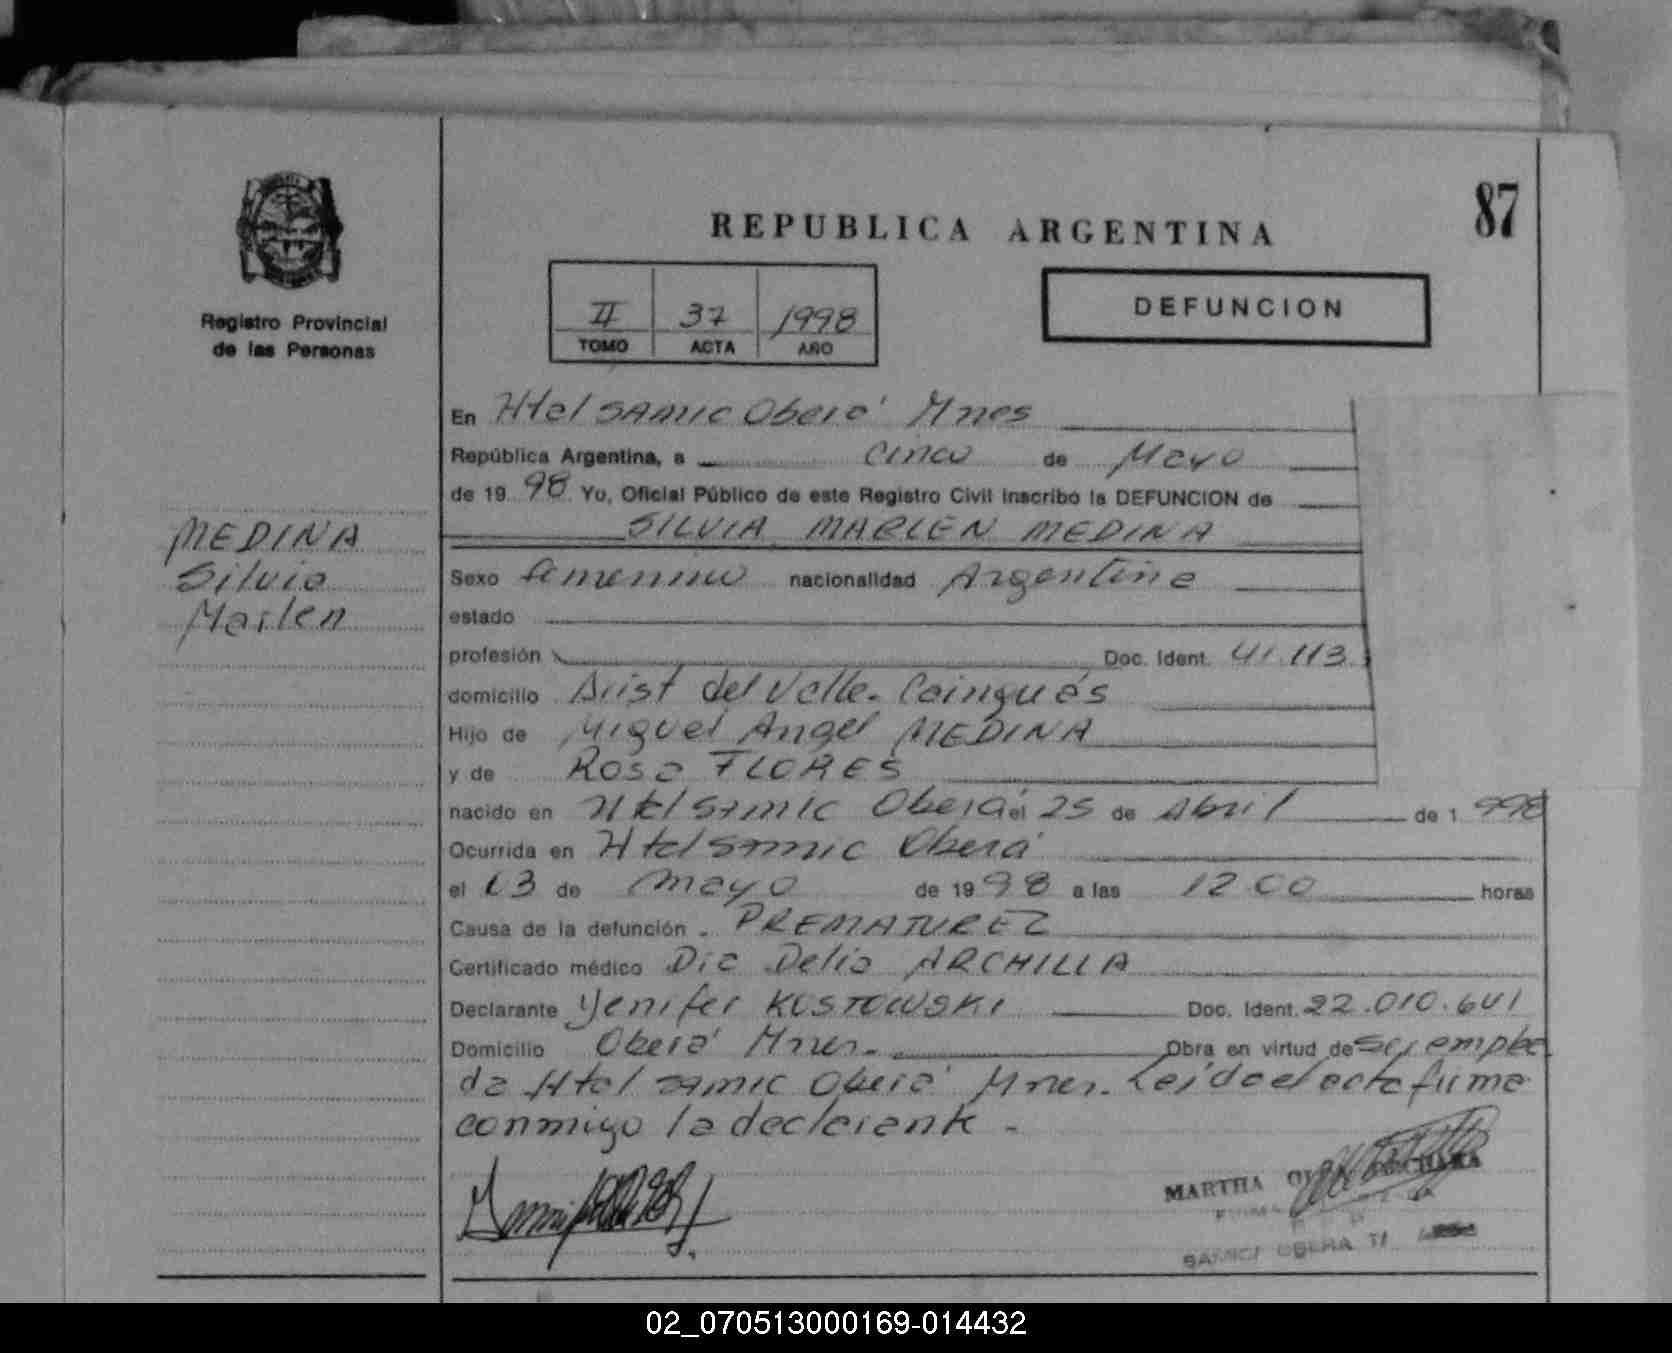 87
REPUBLICA ARGENTINA
Registro Provincial
de las Personas
II 37 1998
TOMO ACTA AÑO
DEFUNCION
MEDINA
Silvia
Marlen
En Htal SAMIC Oberá Mnes
República Argentina, a cinco de Mayo
de 1998 Yo, Oficial Público de este Registro Civil inscribo la DEFUNCION de
SILVIA MARLEN MEDINA
Sexo femenino nacionalidad Argentina
estado
profesión Doc. Ident. 41.113
domicilio Arist del Valle. Cainguás
Hijo de Miguel Angel MEDINA
y de Rosa FLORES
nacido en Htal Samic Oberá el 25 de Abril de 1998
Ocurrida en Htal Samic Oberá
el 03 de mayo de 1998 a las 12 00 horas
Causa de la defunción . PREMATUREZ
Certificado médico Dra Delia ARCHILLA
Declarante Yenifer KOSTOWSKI Doc. Ident. 22.010.641
Domicilio Oberá Mnes. Obra en virtud de ser emplea
da Htal SAMIC Oberá Mnes. Leída el acta firma
conmigo la declarante .
MARTHA
SAMIC OBERA
02_070513000169-014432